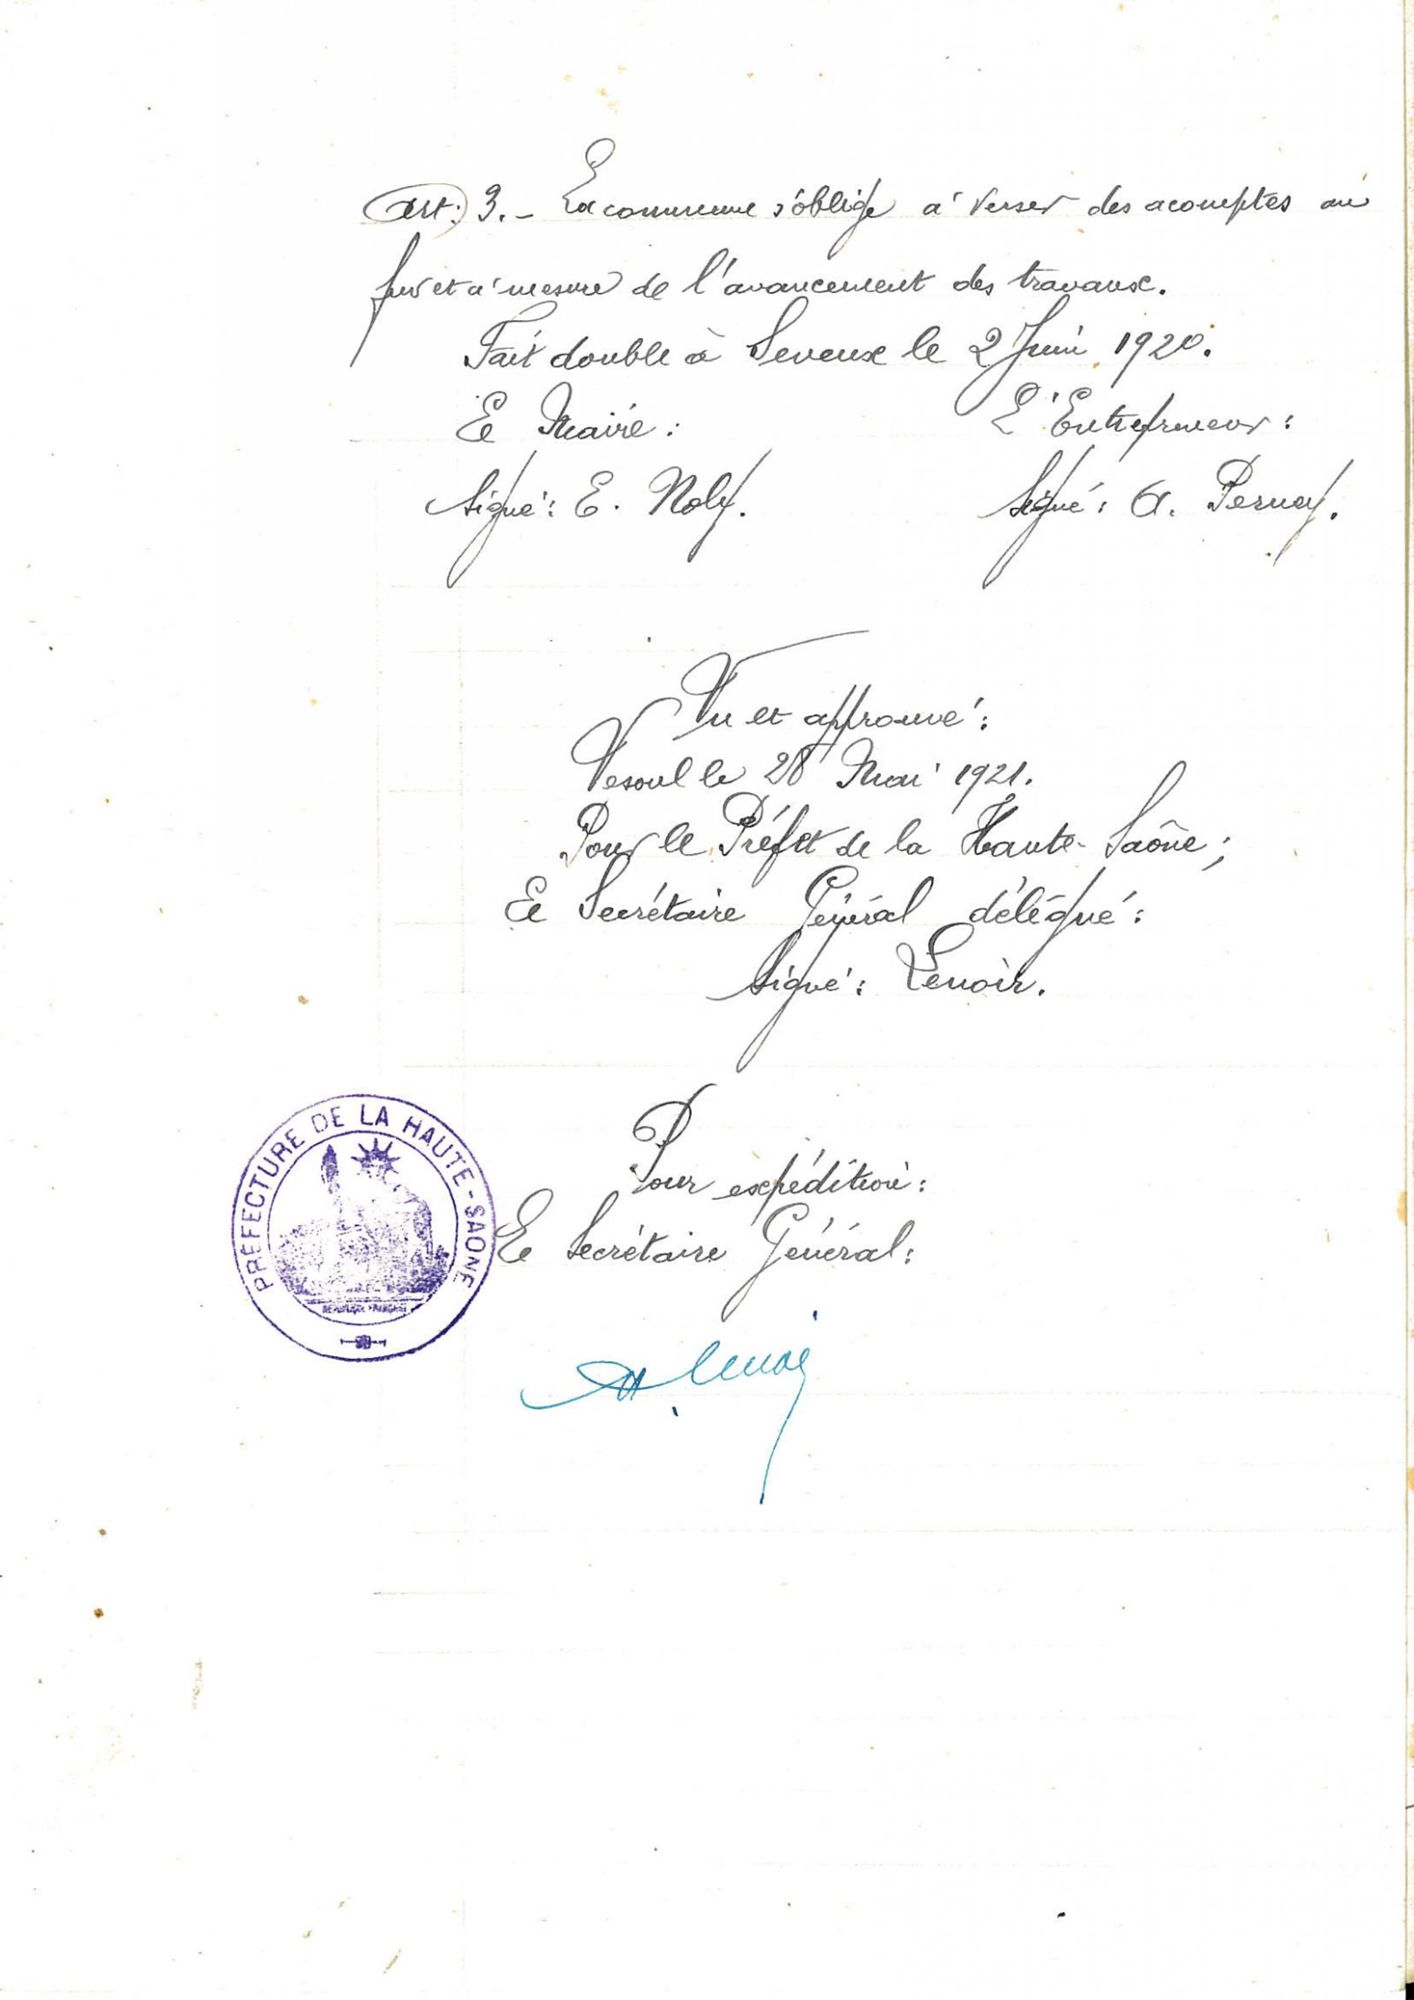 Art: 3. - La commune s'oblige à verser des acomptes au
fur et à mesure de l'avancement des travaux.
Fait double à Seveux le 2 Juin 1920.
Le Maire : L'Entrepreneur :
Signé : E. Noly. Signé : A. Perney.
Vu et approuvé :
Vesoul le 28 Mai 1921.
Pour le Préfet de la Haute-Saône ;
Le Secrétaire Général délégué :
Signé : Lenoir.
Pour expédition :
Le Secrétaire Général :
PRÉFECTURE DE LA HAUTE-SAONE
RÉPUBLIQUE FRANÇAISE
Lenoir